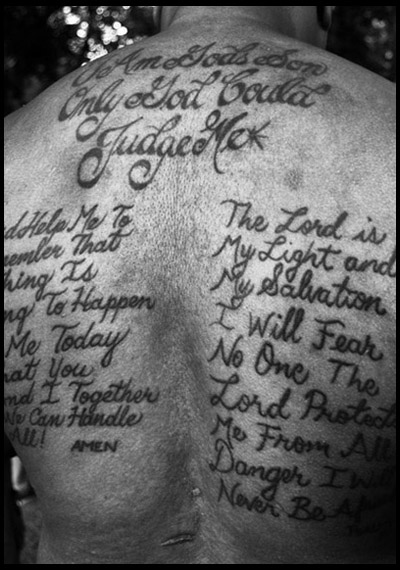 I Am Gods Son
Only God Could
Judge Me
Help Me To
That
Is
To Happen
Me Today
You
I Together
We Can Handle
All!
AMEN
The Lord is
My Light and
My Salvation
I Will Fear
No One The
Lord Protects
Me From All
Danger I Will
Never Be